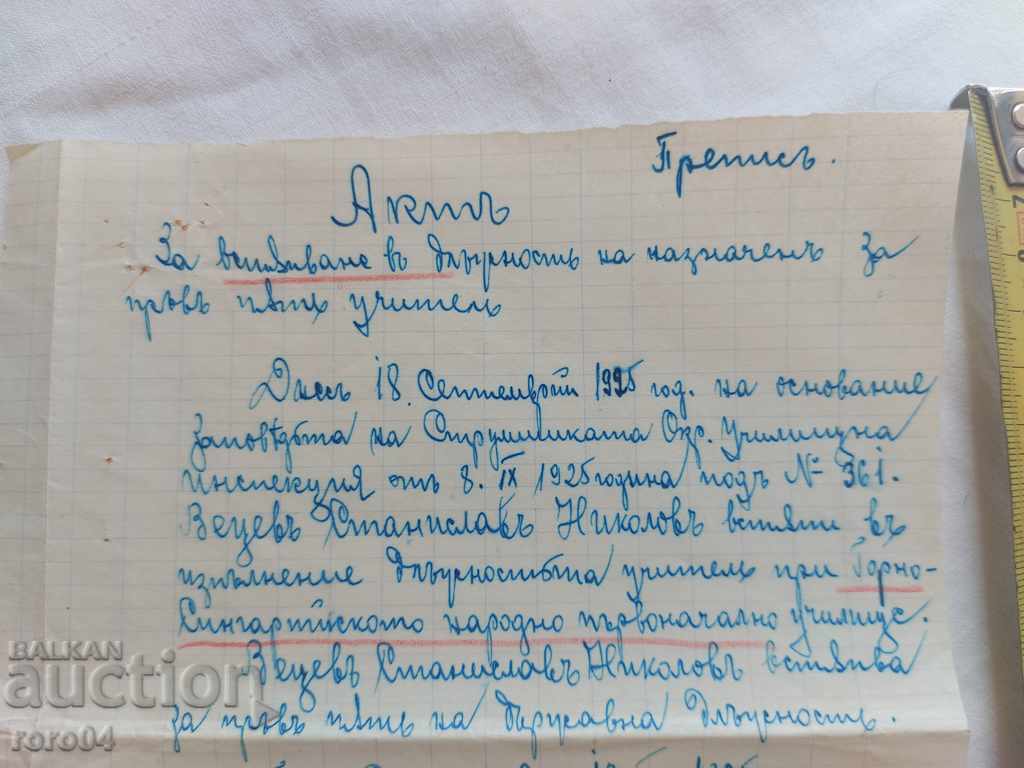 Преписъ.
Актъ
За встѫпване въ длъжность на назначенъ за
пръвъ пѫть учитель
Днесъ 18. Септемврий 1925 год. на основание
заповѣдьта на Струмишката Окр. Училищна
Инспекция отъ 8. IX 1925 година подъ № 361.
Вецевъ Станиславъ Николовъ встѫпи въ
изпълнение длъжностьта учитель при Горно-
Сингартийското народно първоначално училище.
Вецевъ Станиславъ Николовъ встѫпва
за пръвъ пѫть на държавна длъжность.
BALKAN
auction
roro04